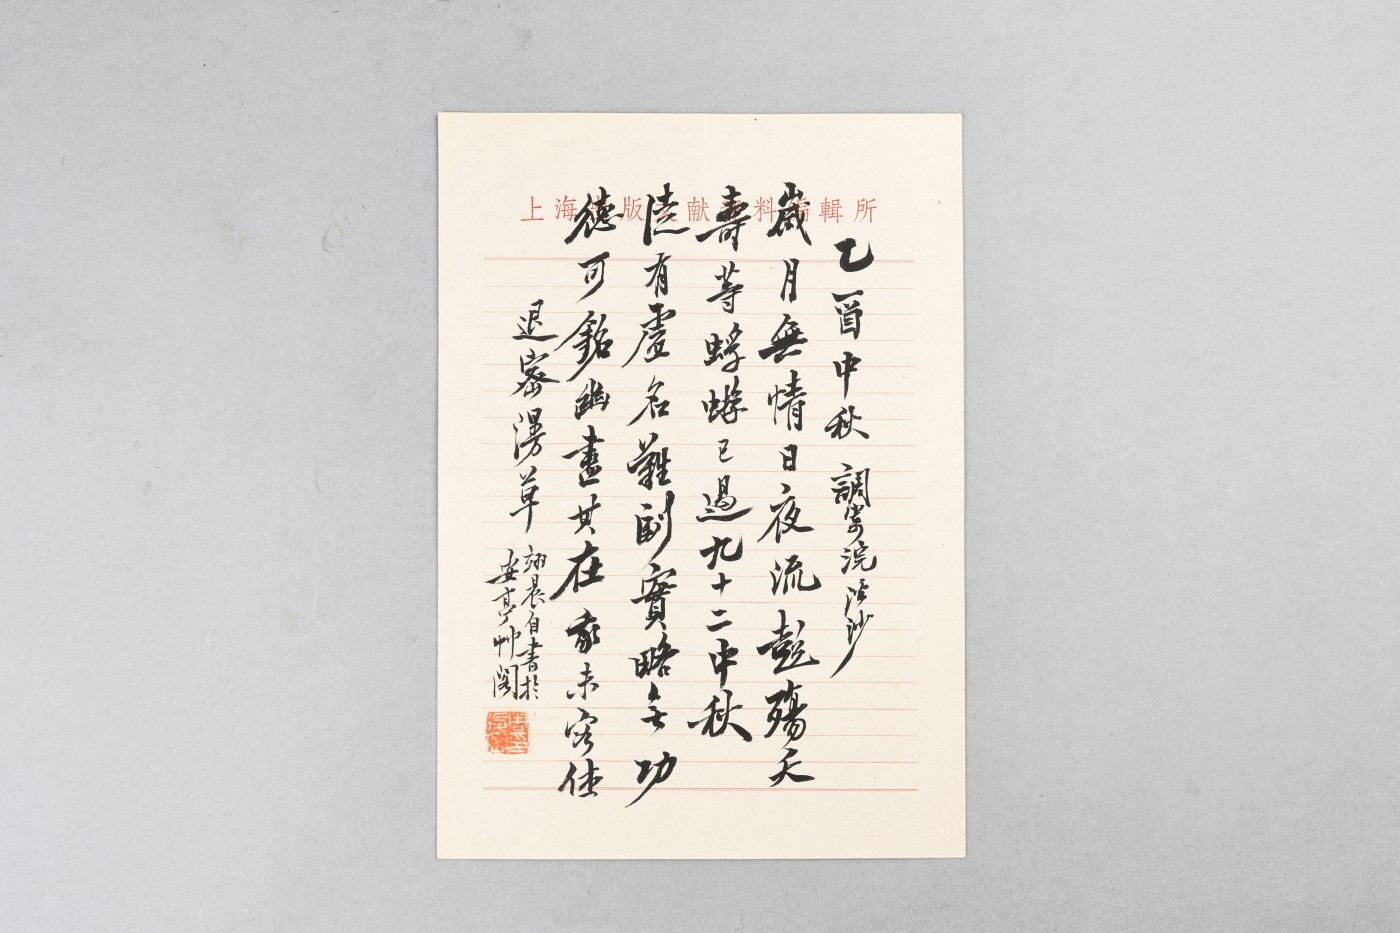 上海出版文献資料編輯所
乙酉中秋 調寄浣溪沙
歲月無情日夜流彭殤夭
壽等蜉蝣已過九十二中秋
徒有虛名難副實略無功
德可銘幽盡其在我未容休
退密漫草
翊晨自書於
安亭艸閣